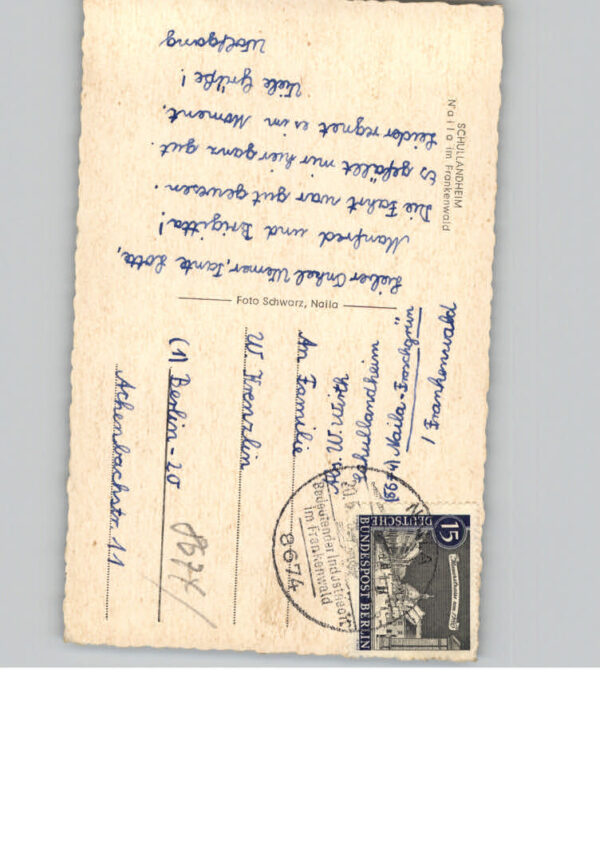 SCHULLANDHEIM
Naila im Frankenwald
Lieber Onkel Werner, Tante Lotte,
Manfred und Brigitta!
Die Fahrt war gut gewesen.
Es gefällt mir hier ganz gut.
Leider regnet es im Moment.
Viele Grüße!
Wolfgang
Foto Schwarz, Naila
Abs. W.
Schullandheim
(8674) Naila-Froschgrün
/ Frankenwald
An Familie
W. Krenzlin
(1) Berlin-20
Achenbachstr. 11
8674
NAILA
8674
Bedeutender Industrieort
im Frankenwald
15
DEUTSCHE
BUNDESPOST BERLIN